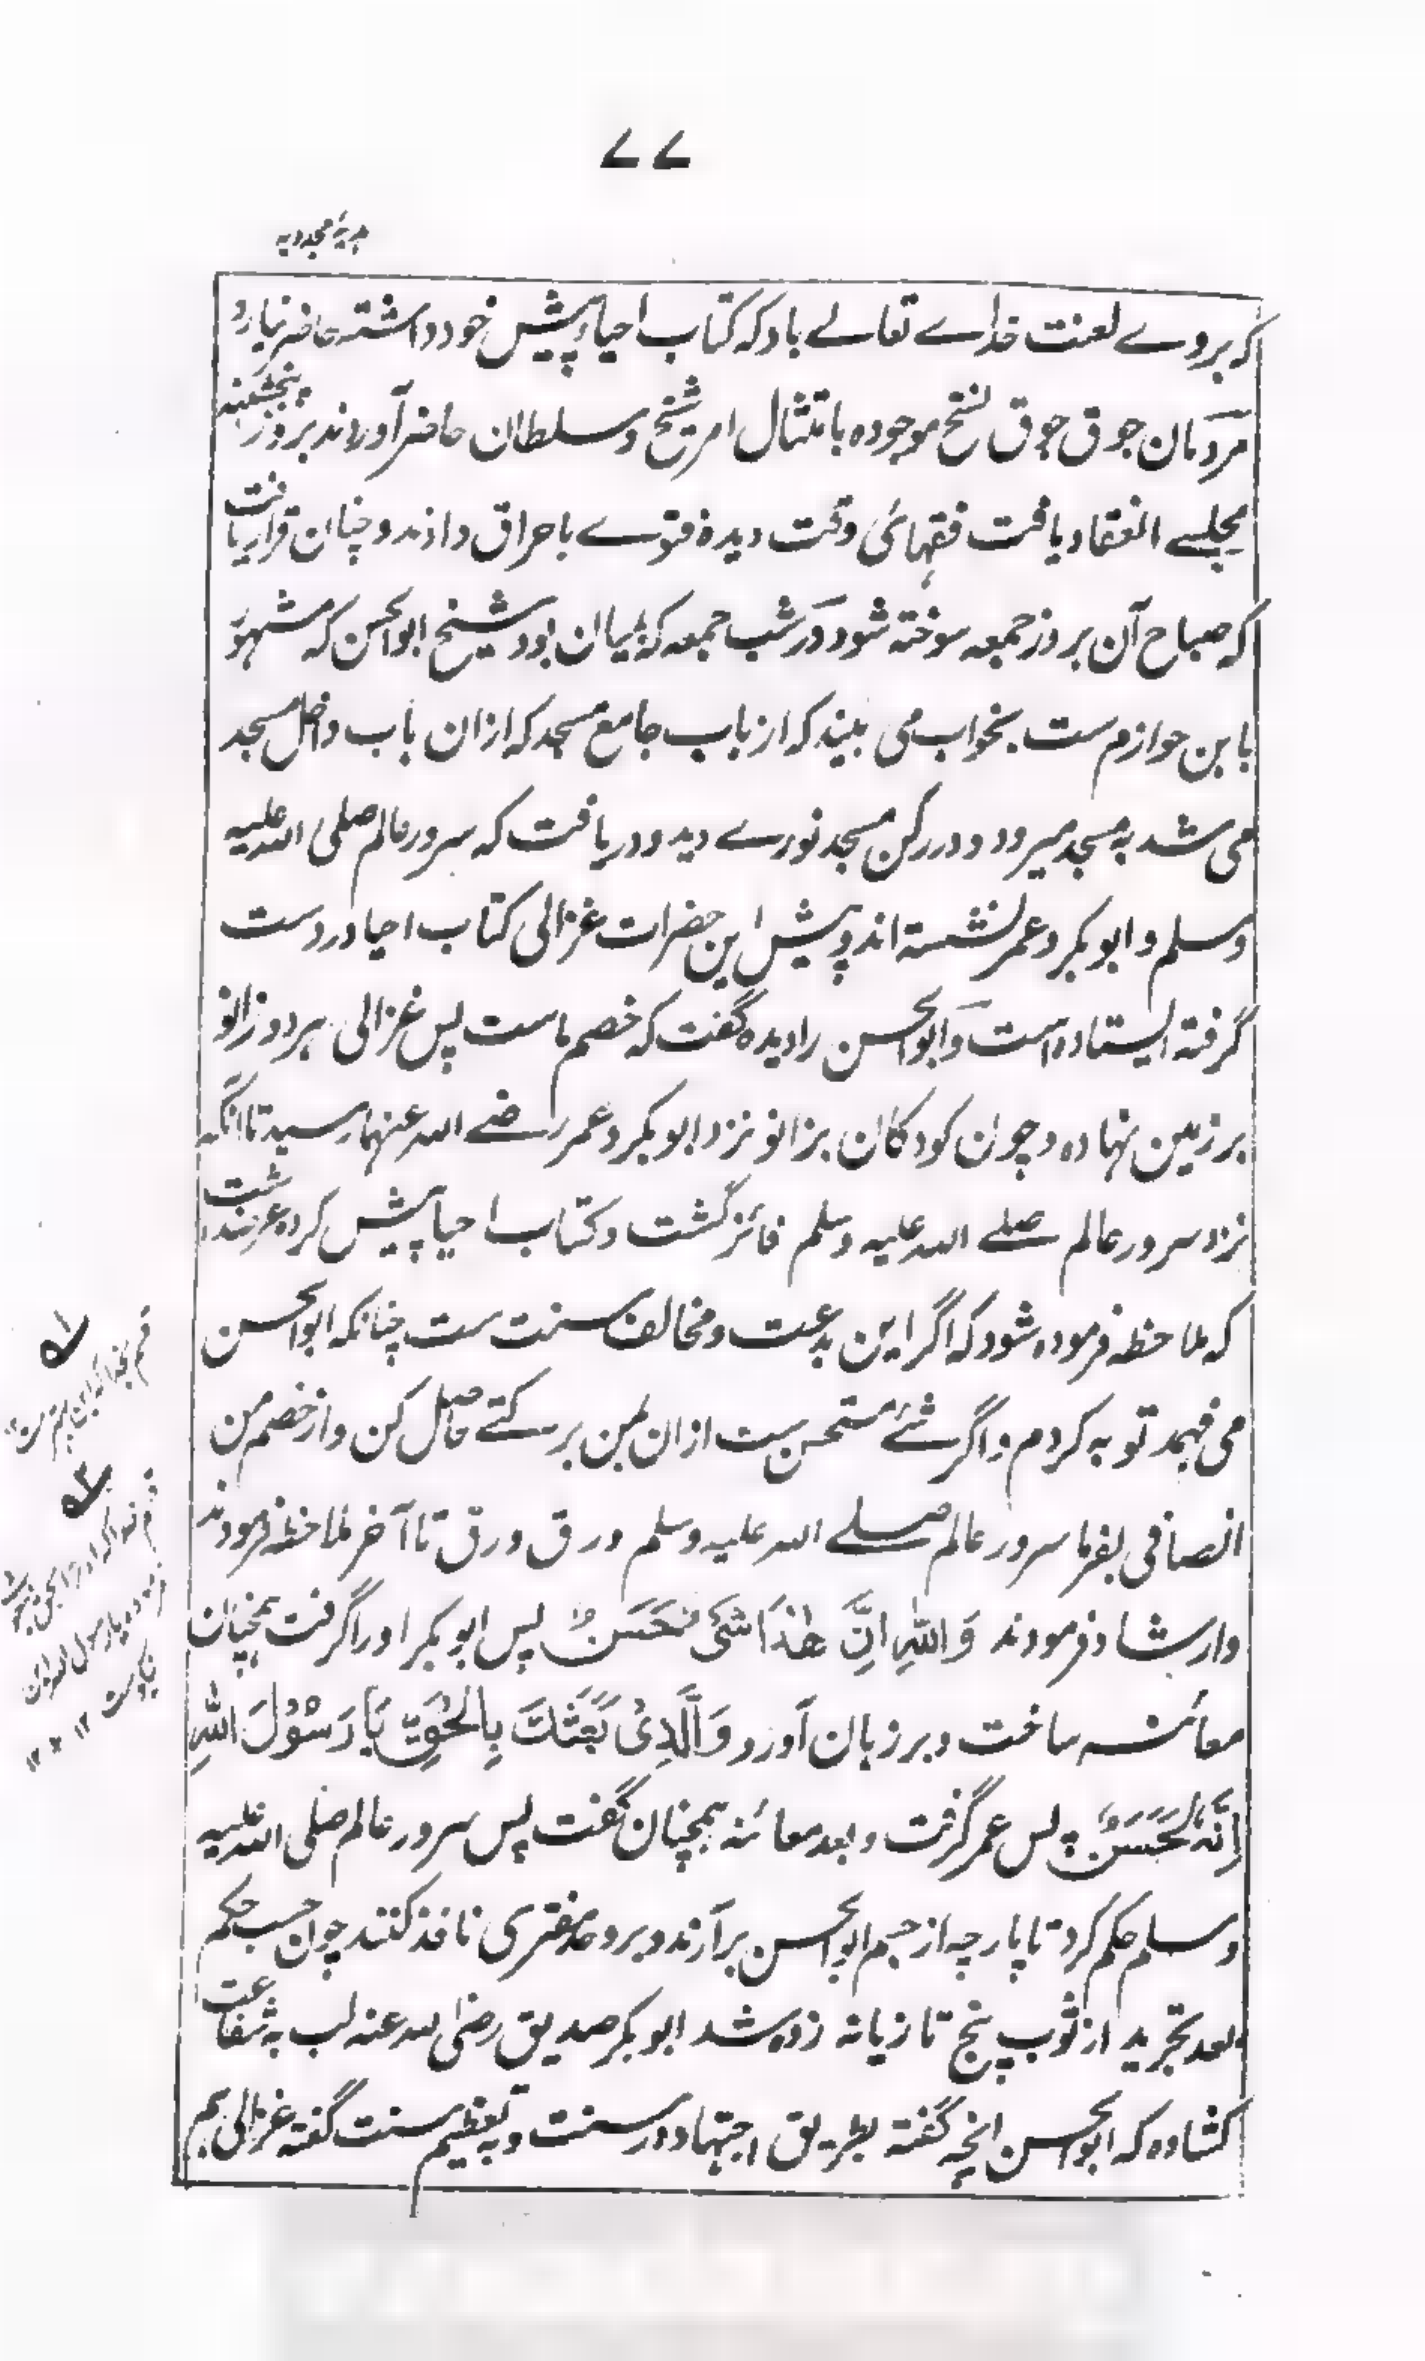 ۷۷
ہدیۂ مجددیہ
کہ بروے لعنت خداے تعالے باد کہ کتاب احیا پیش خود داشتہ حاضر نیارد
مردمان جوق جوق نسخ موجودہ بامتثال امر شیخ و سلطان حاضر آوردند بروز پنجشنبہ
مجلسے انعقاد یافت فقہائی وقت دیدہ فتوے باحراق دادند و چنان قرار یافت
کہ صباح آن بروز جمعہ سوختہ شود در شب جمعہ کہ بمیان بود شیخ ابوالحسن کہ مشہور
بابن حوازم ست بخواب می بیند کہ از باب جامع مسجد کہ ازان باب داخل مسجد
می شد بہ مسجد میرود و در رکن مسجد نورے دید و دریافت کہ سرور عالم صلی اللہ علیہ
وسلم و ابوبکر و عمر نشستہ اند و پیش این حضرات غزالی کتاب احیا در دست
گرفتہ ایستادہ است و ابوالحسن را دیدہ گفت کہ خصم ماست پس غزالی ہر دو زانو
بر زمین نہادہ و چون کودکان بزانو نزد ابوبکر و عمر رضے اللہ عنہما رسید تا آنکہ
نزد سرور عالم صلے اللہ علیہ وسلم فائز گشت و کتاب احیا پیش کردہ عرضداشت
کہ ملاحظہ فرمودہ شود کہ اگر این بدعت و مخالف سنت ست چنانکہ ابوالحسن
می فہمد توبہ کردم و اگر شئے مستحسن ست ازان بمن برکتے حاصل کن و از خصم من
انصافی بفرما سرور عالم صلے اللہ علیہ وسلم ورق ورق تا آخر ملاحظہ فرمودند
وارشاد فرمودند وَاللّٰہِ اِنَّ ھٰذَا شَیٌٔ حَسَنٌ پس ابوبکر اورا گرفت ہمچنان
معائنہ ساخت و بر زبان آورد وَالَّذِیْ بَعَثَکَ بِالْحَقِّ یَا رَسُوْلَ اللّٰہِ
اِنَّہٗ لَحَسَنٌ پس عمر گرفت و بعد معائنہ ہمچنان گفت پس سرور عالم صلی اللہ علیہ
وسلم حکم کرد تا پارچہ از جسم ابوالحسن برآرند و برو حد مفتری نافذ کنند چون حسب حکم
بعد تجرید از ثوب پنج تازیانہ زدہ شد ابوبکر صدیق رضی اللہ عنہ لب بہ شفاعت
کشادہ کہ ابوالحسن انچہ گفتہ بطریق اجتہاد در سنت و بہ تعظیم سنت گفتہ غزالی ہم
لہ
قسم بخدا کہ این بہتر ست
فرمودہ یا رسول اللہ این
نیکوست ۱۲